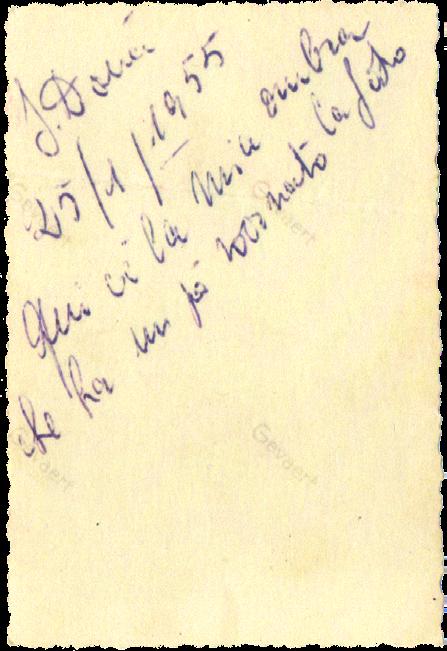 S. Donà
25/1/1955
Qui c'è la mia ombra
che ha un pò rovinato la foto
Gevaert
Gevaert
Gevaert
Gevaert